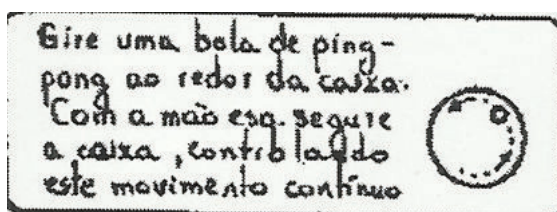 Gire uma bola de ping-
pong ao redor da caixa.
Com a mão esq. segure
a caixa, controlando
este movimento contínuo